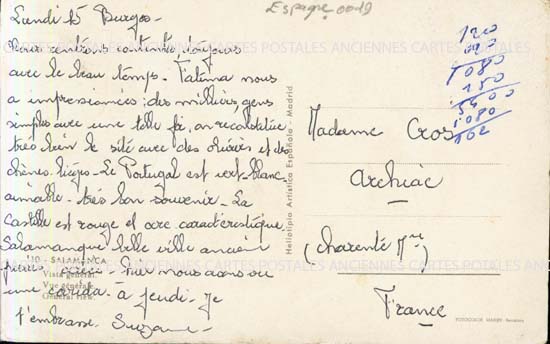 Espagne 0019
Lundi 15 Burgos -
Nous rentrons contents, toujours
avec le beau temps - Fatima nous
a impressionnées, des milliers, gens
simples avec une telle foi, on reconstitue
très bien le site avec des oliviers et des
chênes lièges - Le Portugal est vert - blanc
aimable - très bon souvenir - La
Castille est rouge et ocre caractéristique,
Salamanque belle ville ancien
hier nous avons vu
une corrida - à jeudi - Je
t'embrasse. Suzanne -
110 - SALAMANCA
Vista general.
Vue générale.
General view.
Heliotipia Artística Española - Madrid
Madame Cros
Archiac
(Charente Mme)
France
1080
150
5400
1080
FOTOCOLOR
CARTES POSTALES ANCIENNES CARTES POSTALES ANCIENNES